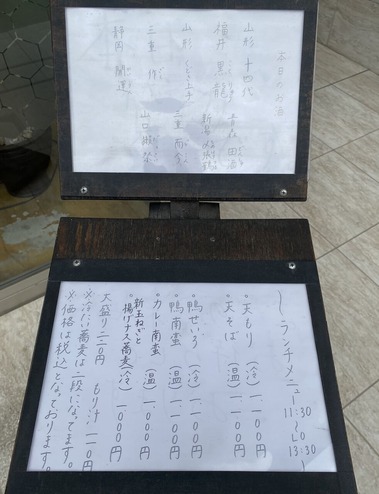 本日のお酒
山形 十四代
福井 黒龍
青森 田酒
山形 くどき上手
新潟
三重 作
三重 而今
静岡 開運
山口 獺祭
〜ランチメニュー 11:30〜LO13:30〜
・天もり (冷) 一、一〇〇〇円
・天そば (温) 一、一〇〇〇円
・鴨せいろ (冷) 一、一〇〇〇円
・鴨南蛮 (温) 一、一〇〇〇円
・カレー南蛮 (温) 一、〇〇〇円
・新玉ねぎと揚げナス蕎麦(冷) 一、〇〇〇円
大盛り二二〇円 もり汁 一一〇円
※冷たい蕎麦は二段になってます。
※価格は税込となっております。